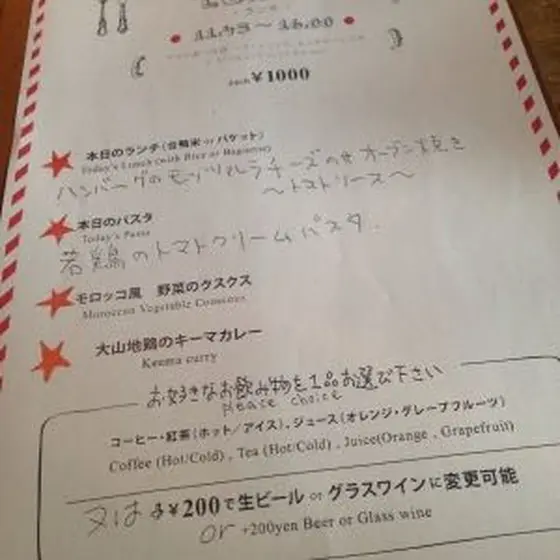 11:45～16:00
each ¥1000
本日のランチ(合鴨米 or バゲット)
Today's Lunch (with Rice or Baguette)
ハンバーグのモッツァレラチーズのせオーブン焼き
～トマトソース～
本日のパスタ
Today's Pasta
若鶏のトマトクリームパスタ
モロッコ風 野菜のクスクス
Moroccan Vegetable Couscous
大山地鶏のキーマカレー
Keema curry
お好きなお飲み物を1品お選び下さい
please choice
コーヒー・紅茶(ホット/アイス)、ジュース(オレンジ・グレープフルーツ)
Coffee (Hot/Cold) , Tea (Hot/Cold) , Juice(Orange , Grapefruit)
又は +¥200で生ビール or グラスワインに変更可能
or +200yen Beer or Glass wine